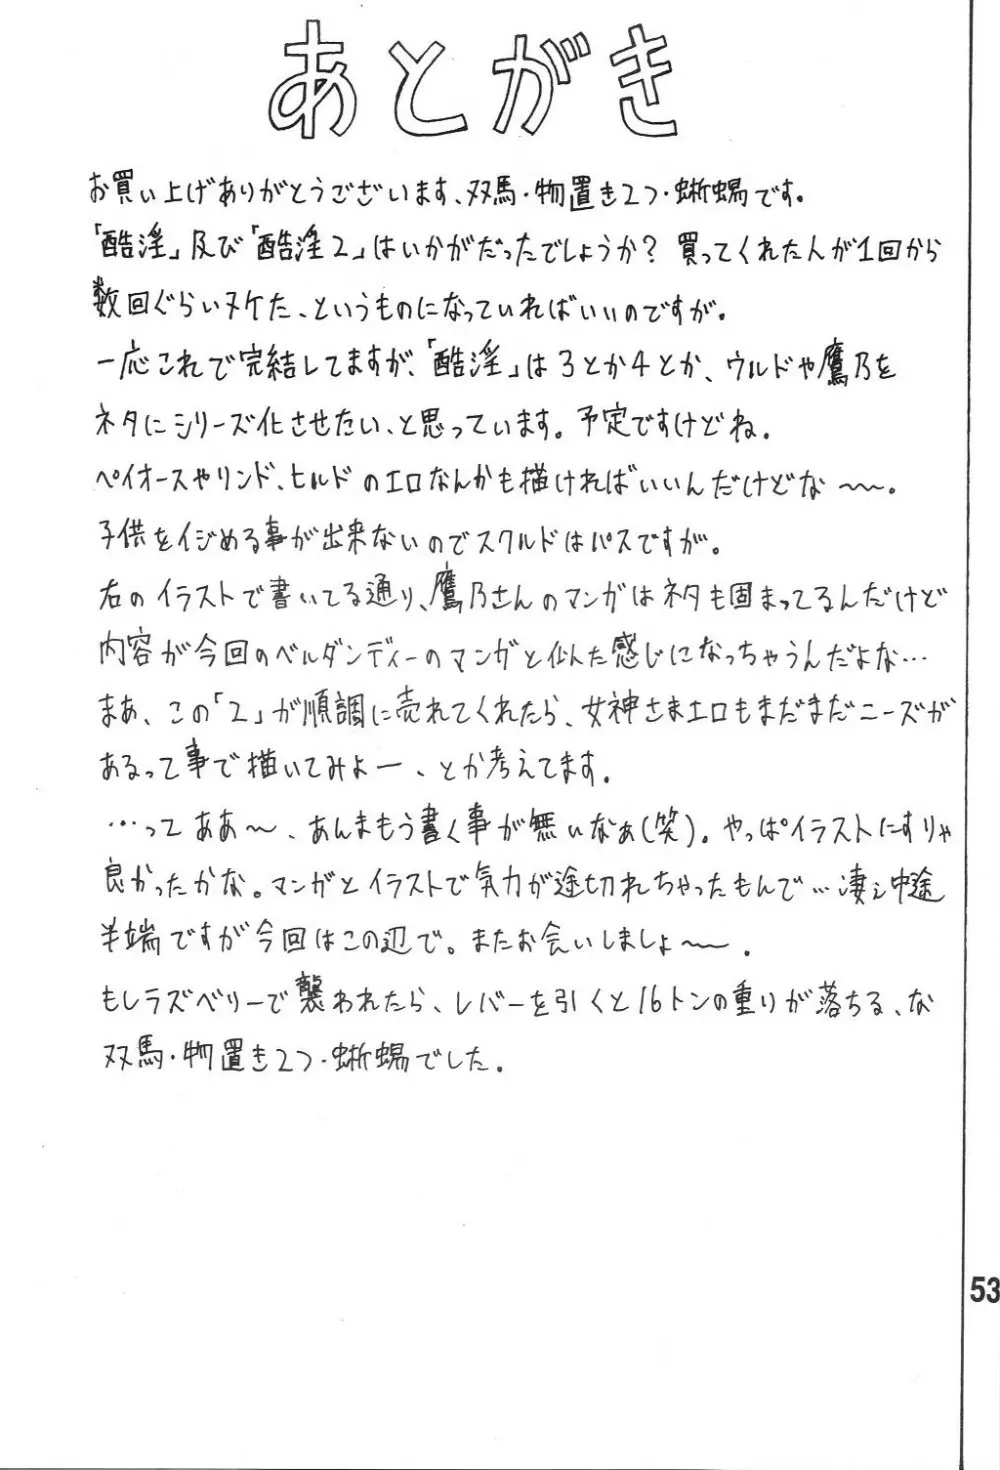 あとがき
お買い上げありがとうございます、双馬・物置き2つ・蜥蜴です。
「酷淫」及び「酷淫2」はいかがだったでしょうか？ 買ってくれた人が1回から
数回ぐらいヌケた、というものになっていればいいのですが。
一応これで完結してますが、「酷淫」は3とか4とか、ウルドや鷹乃を
ネタにシリーズ化させたい、と思っています。予定ですけどね。
ペイオースやリンド、ヒルドのエロなんかも描ければいいんだけどな〜〜。
子供をイジめる事が出来ないのでスクルドはパスですが。
右のイラストで書いてる通り、鷹乃さんのマンガはネタも固まってるんだけど
内容が今回のベルダンディーのマンガと似た感じになっちゃうんだよな…
まあ、この「2」が順調に売れてくれたら、女神さまエロもまだまだニーズが
あるって事で描いてみよー、とか考えてます。
…ってああ〜、あんまもう書く事が無いなぁ(笑)。やっぱイラストにすりゃ
良かったかな。マンガとイラストで気力が途切れちゃったもんで…凄ェ中途
半端ですが今回はこの辺で。またお会いしましょ〜〜.
もしラズベリーで襲われたら、レバーを引くと16トンの重りが落ちる、な
双馬・物置き2つ・蜥蜴でした.
53